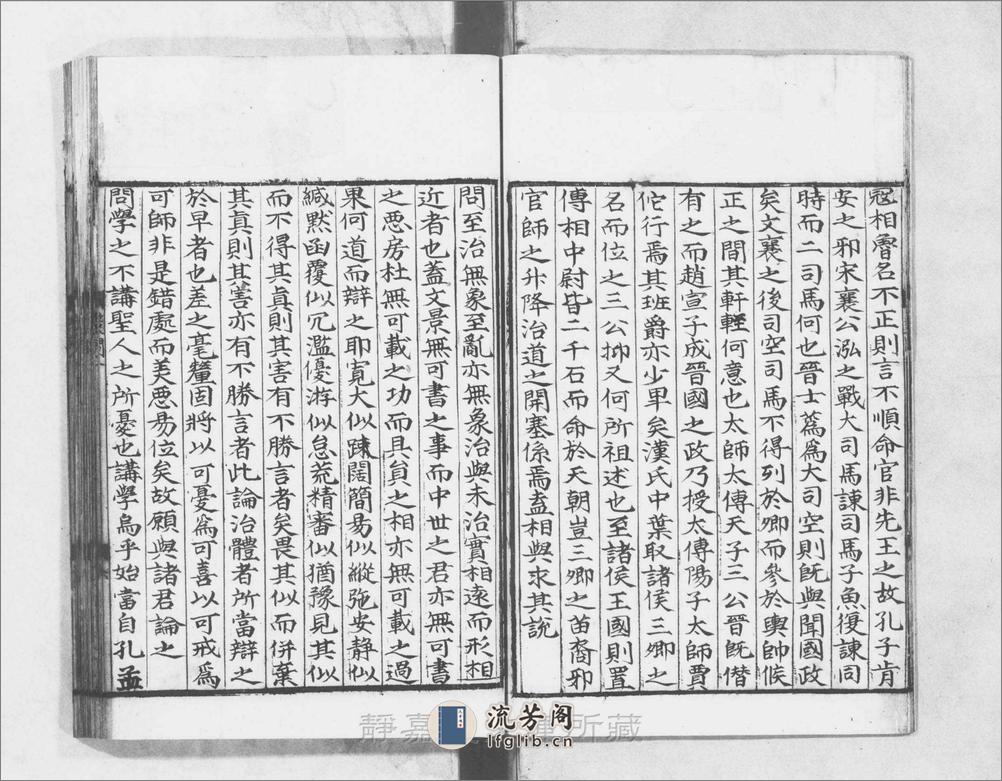 冦相脅名不正則言不順命官非先王之故孔子肯
安之邪宋襄公泓之戰大司馬諫司馬子魚復諫同
時而二司馬何也晉士蔿爲大司空則旣與聞國政
矣文襄之後司空司馬不得列於卿而參於輿帥候
正之間其軒輊何意也太師太傅天子三公晉旣僭
有之而趙宣子成晉國之政乃授太傅陽子太師賈
佗行焉其班爵亦少卑矣漢氏中葉取諸侯三卿之
名而位之三公抑又何所祖述也至諸侯王國則置
傅相中尉皆二千石而命於天朝豈三卿之苗裔邪
官師之升降治道之開塞係焉盍相與求其說
問至治無象至亂亦無象治與未治實相遠而形相
近者也蓋文景無可書之事而中世之君亦無可書
之惡房杜無可載之功而具貟之相亦無可載之過
果何道而辯之耶寬大似踈闊簡易似縱弛安静似
緘默函覆似冗濫優游似怠荒精審似猶豫見其似
而不得其真則其害有不勝言者矣畏其似而併棄
其真則其害亦有不勝言者此論治體者所當辯之
於早者也差之毫釐固將以可憂爲可喜以可戒爲
可師非是錯處而美惡易位矣故願與諸君論之
問學之不講聖人之所憂也講學烏乎始當自孔孟
静嘉 所藏
流芳阁
lfglib.cn